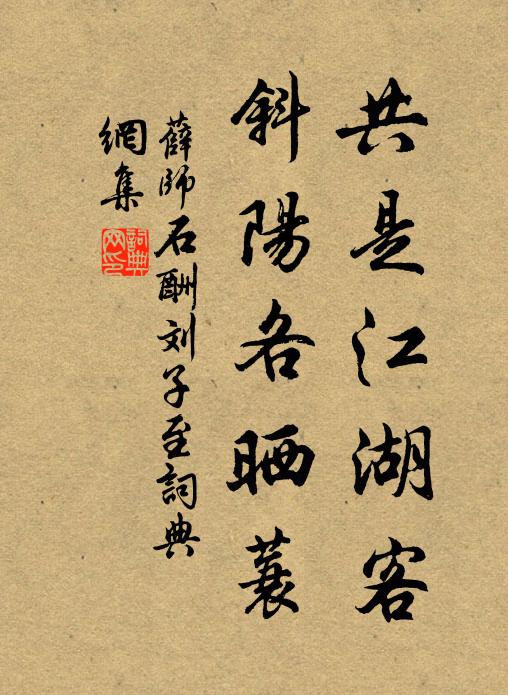 共是江湖客
斜陽各晒蓑
薛師石酬刘子至詞典
網集
詞典
网印